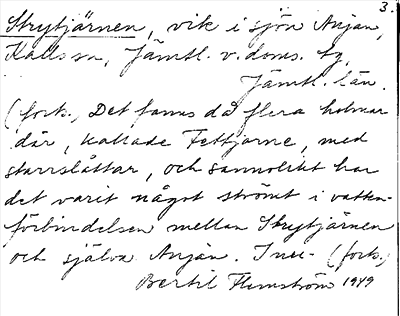 3.
Strytjärnen, vik i sjön Anjan,
Kalls sn, Jämtl. v. doms. tg,
Jämtl. län.
(forts.) Det fanns då flera holmar
där, kallade Fettjarne, med
starrslåttar, och sannolikt har
det varit något strömt i vatten-
förbindelsen mellan Strytjärnen
och själva Anjan. I nu- (forts.)
Bertil Flemström 1949